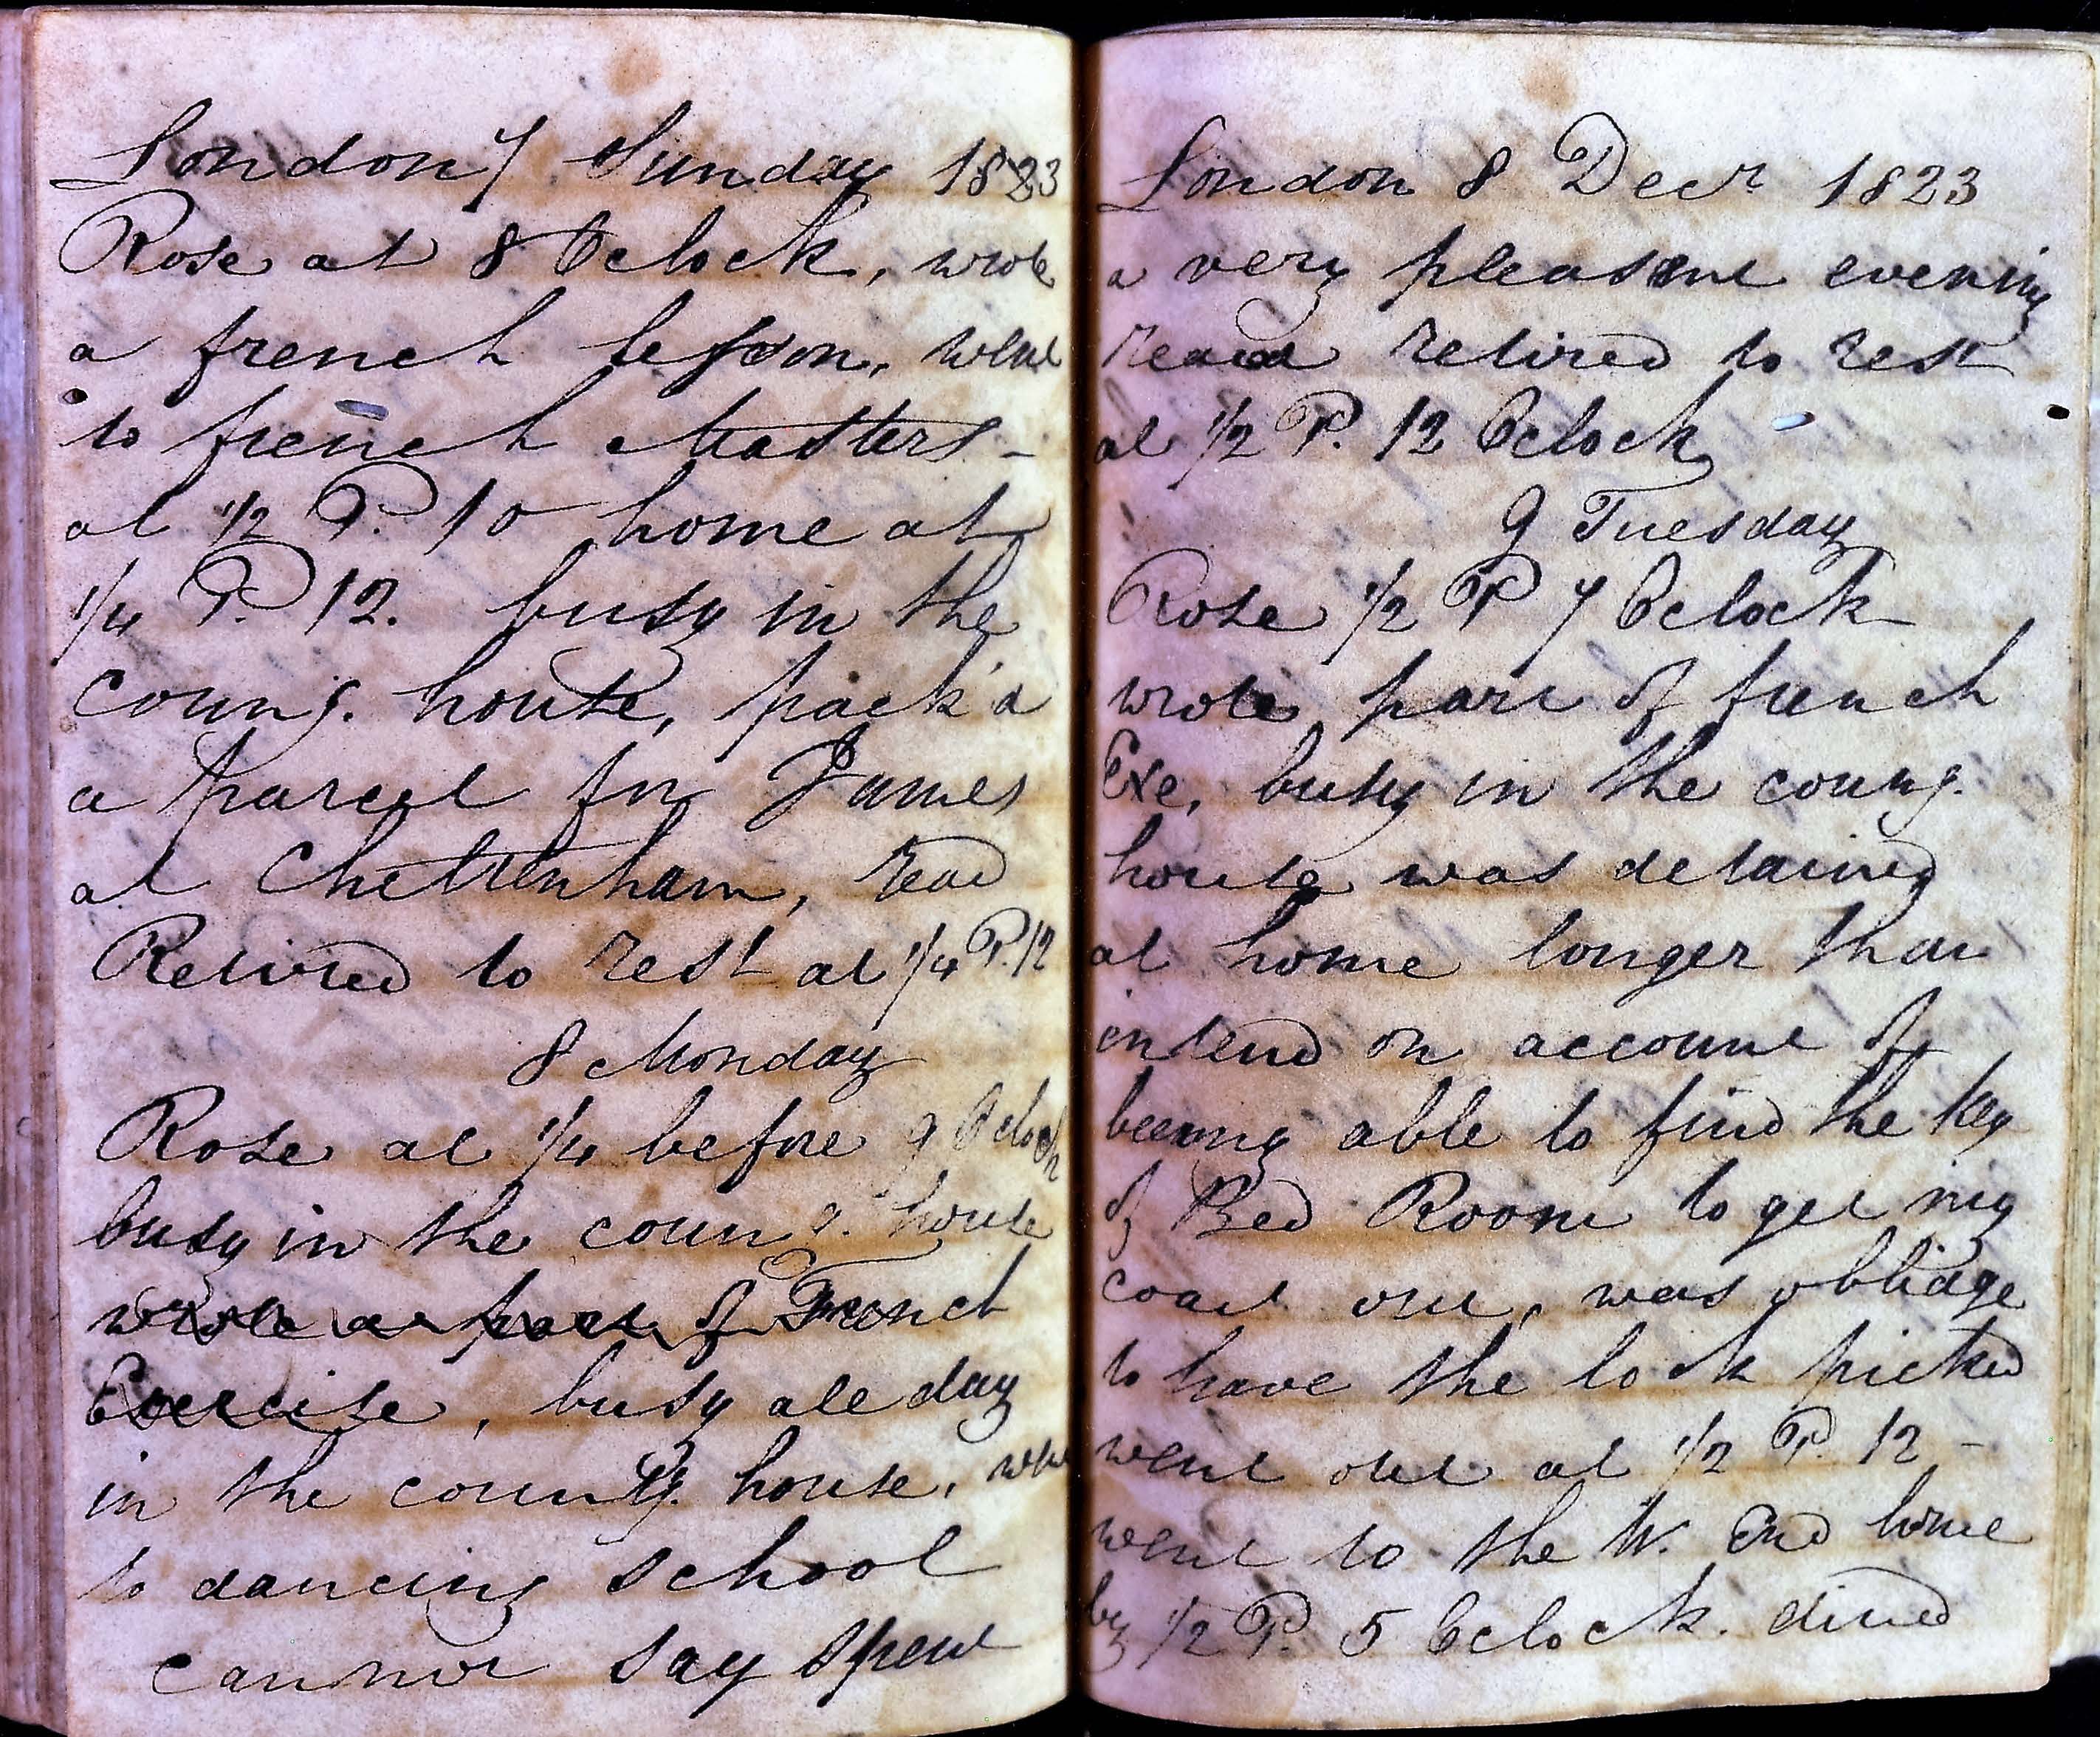 London 7 Sunday 1823
Rose at 8 Oclock, wrote
a french lesson, went
to french Masters -
at 1/2 P. 10 home at
1/4 P. 12. busy in the
Coung. house, pack'd
a parcel for James
at Cheltenham, read
Retired to rest at 1/4 P. 12
8 Monday
Rose at 1/4 before 9 Oclock
busy in the coung. house
wrote a part of French
Exercise, busy all day
in the coung. house, went
to dancing school
cannot say spent
London 8 Decr 1823
a very pleasent evening
read retired to rest
at 1/2 P. 12 Oclock
9 Tuesday
Rose 1/2 P 7 Oclock
wrote part of french
Exe, busy in the coung.
house was detained
at home longer than
intend on account of
being able to find the key
of Bed Room to get my
coat out, was obliage
to have the lock picked
went out at 1/2 P. 12 -
went to the W. End home
by 1/2 P. 5 Oclock. dined